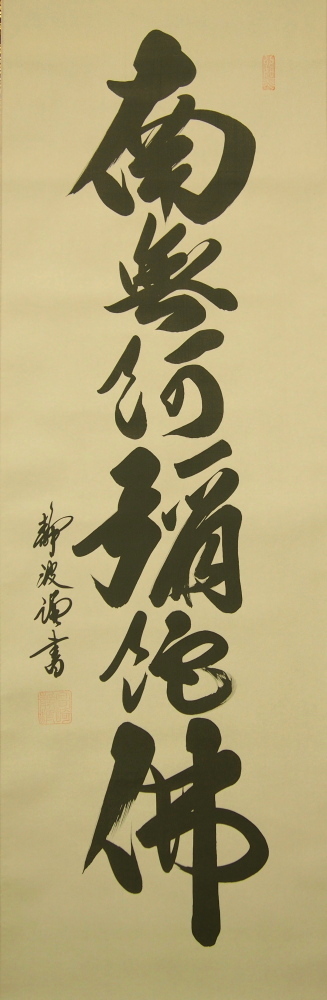 南無阿彌陀佛
靜波謹書